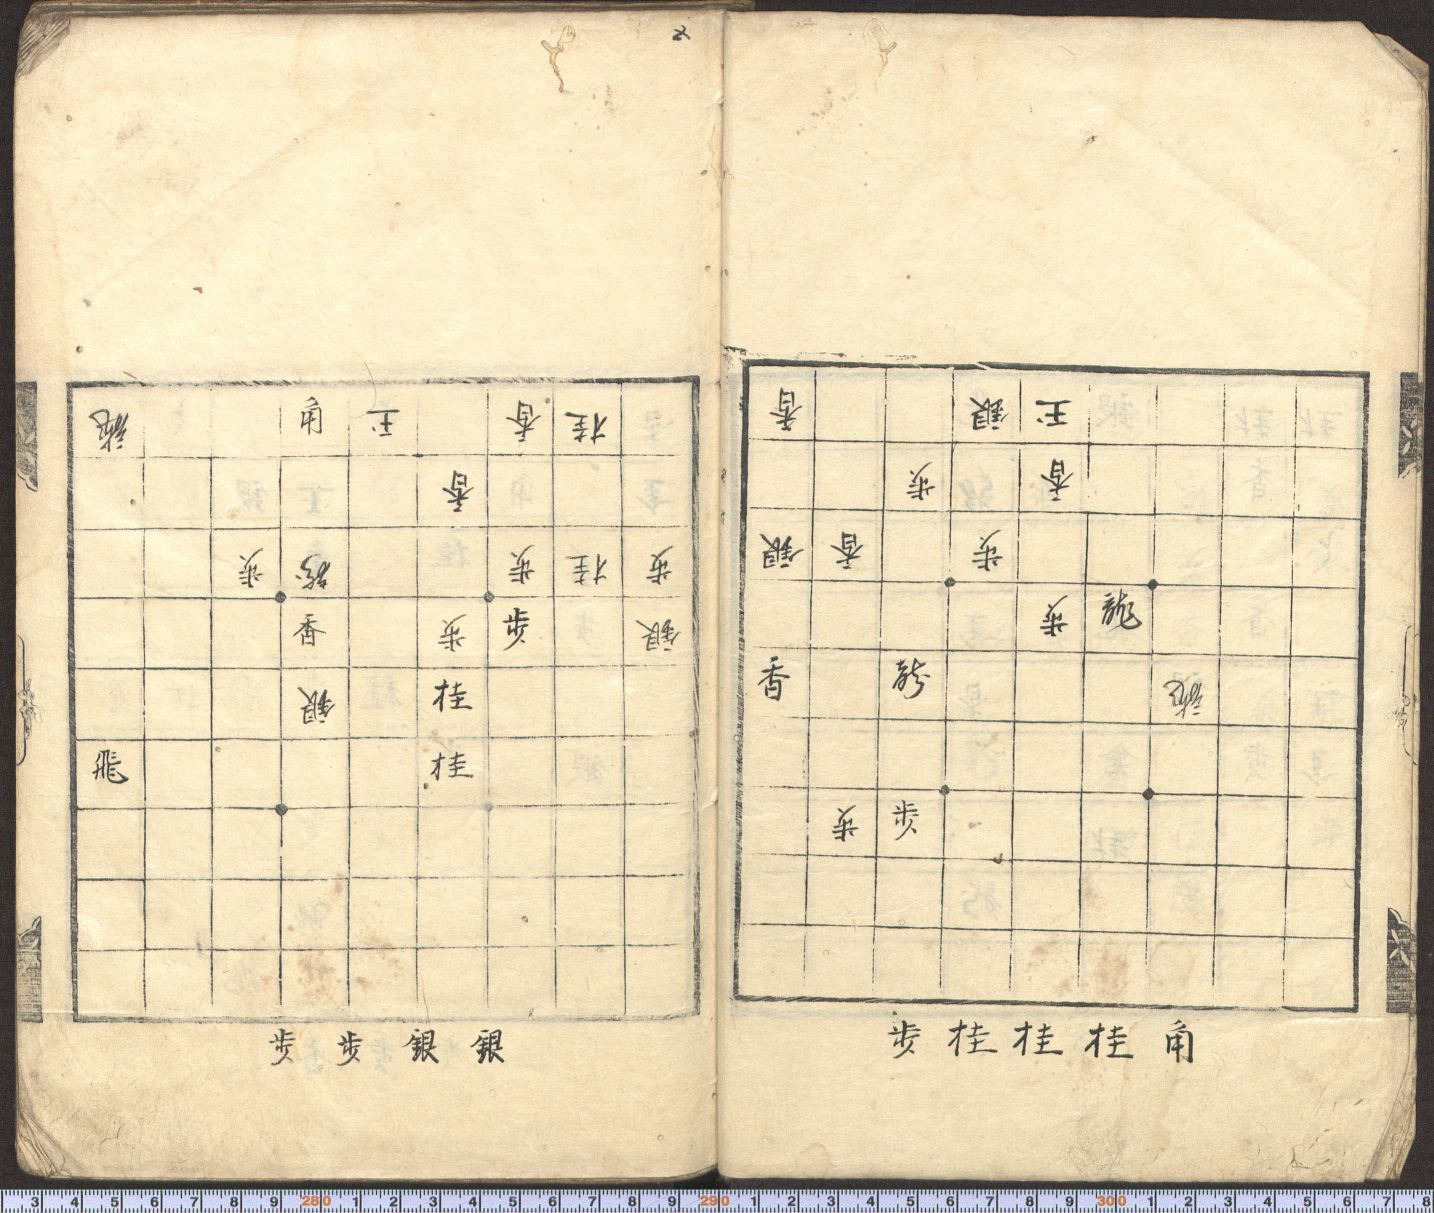 香 銀 玉
歩 香
銀 香 歩
歩 龍
香 龍
歩 歩
歩 桂 桂 桂 角
角 玉 香 桂
香
歩 歩 桂 歩
香 歩 歩 銀
銀 桂
飛 桂
歩 歩 銀 銀
3 4 5 6 7 8 9 280 1 2 3 4 5 6 7 8 9 290 1 2 3 4 5 6 7 8 9 300 1 2 3 4 5 6 7 8